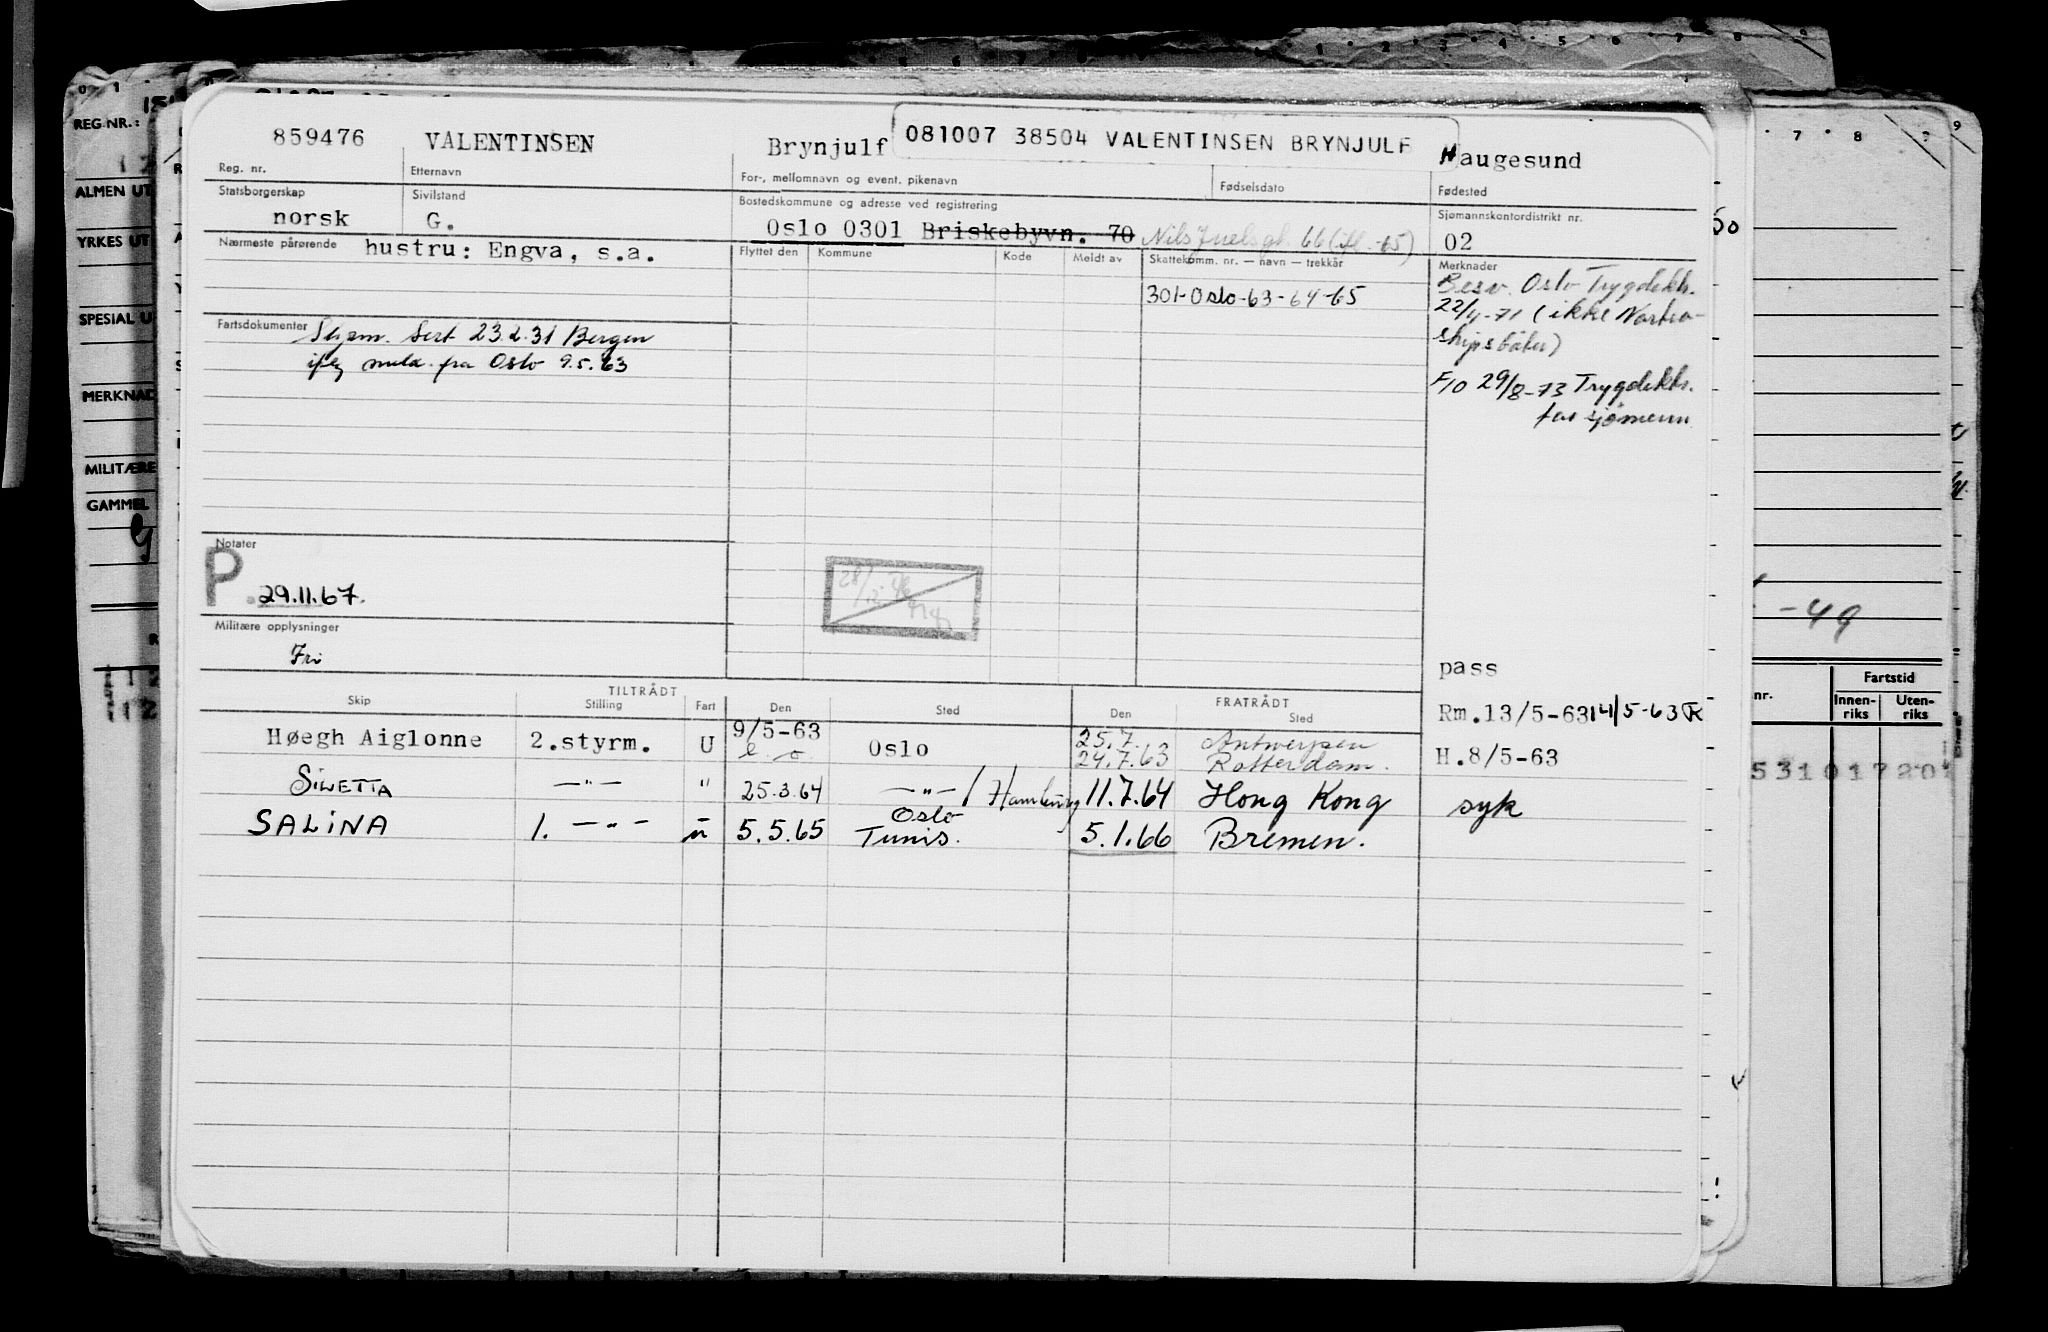 REG.NR.:
ALMEN UT
YRKES UT
SPESIAL U
MERKNAD
MILITÆRE
GAMMEL
859476 VALENTINSEN Brynjulf 081007 38504 VALENTINSEN BRYNJULF Haugesund
Reg. nr. Etternavn For-, mellomnavn og event. pikenavn Fødselsdato Fødested
Statsborgerskap Sivilstand Bostedskommune og adresse ved registrering Sjømannskontordistrikt nr.
norsk G. Oslo 0301 Briskebyvn. 70 Nils Juels gt. 66 (ifl. -65) 02
Nærmeste pårørende hustru: Engva, s.a. Flyttet den Kommune Kode Meldt av Skattekomm. nr. — navn — trekkår Merknader
301-Oslo-63-64-65
Besv. Oslo Trygdekk.
22/4-71 (ikke Nortra-
shipsbåter)
F10 29/8-73 Trygdekk.
for sjømenn
Fartsdokumenter Sjøm. Sert 23.2.31 Bergen
iflg meld. fra Oslo 9.5.63
Notater
P 29.11.67.
28/12
Militære opplysninger
Fri
pass
TILTRÅDT FRATRÅDT
Skip Stilling Fart Den Sted Den Sted
Rm.13/5-63 14/5-63 R
Høegh Aiglonne 2.styrm. U 9/5-63 Oslo 25.7. Antwerpen
24.7.63 Rotterdam. H.8/5-63
Siletta —"— " 25.3.64 —"— / Hamburg 11.7.64 Hong Kong syk
SALINA 1. —"— u 5.5.65 Oslo
Tunis. 5.1.66 Bremen.
7 8 9
-49
nr. Fartstid
Innen-
riks Uten-
riks
53101720